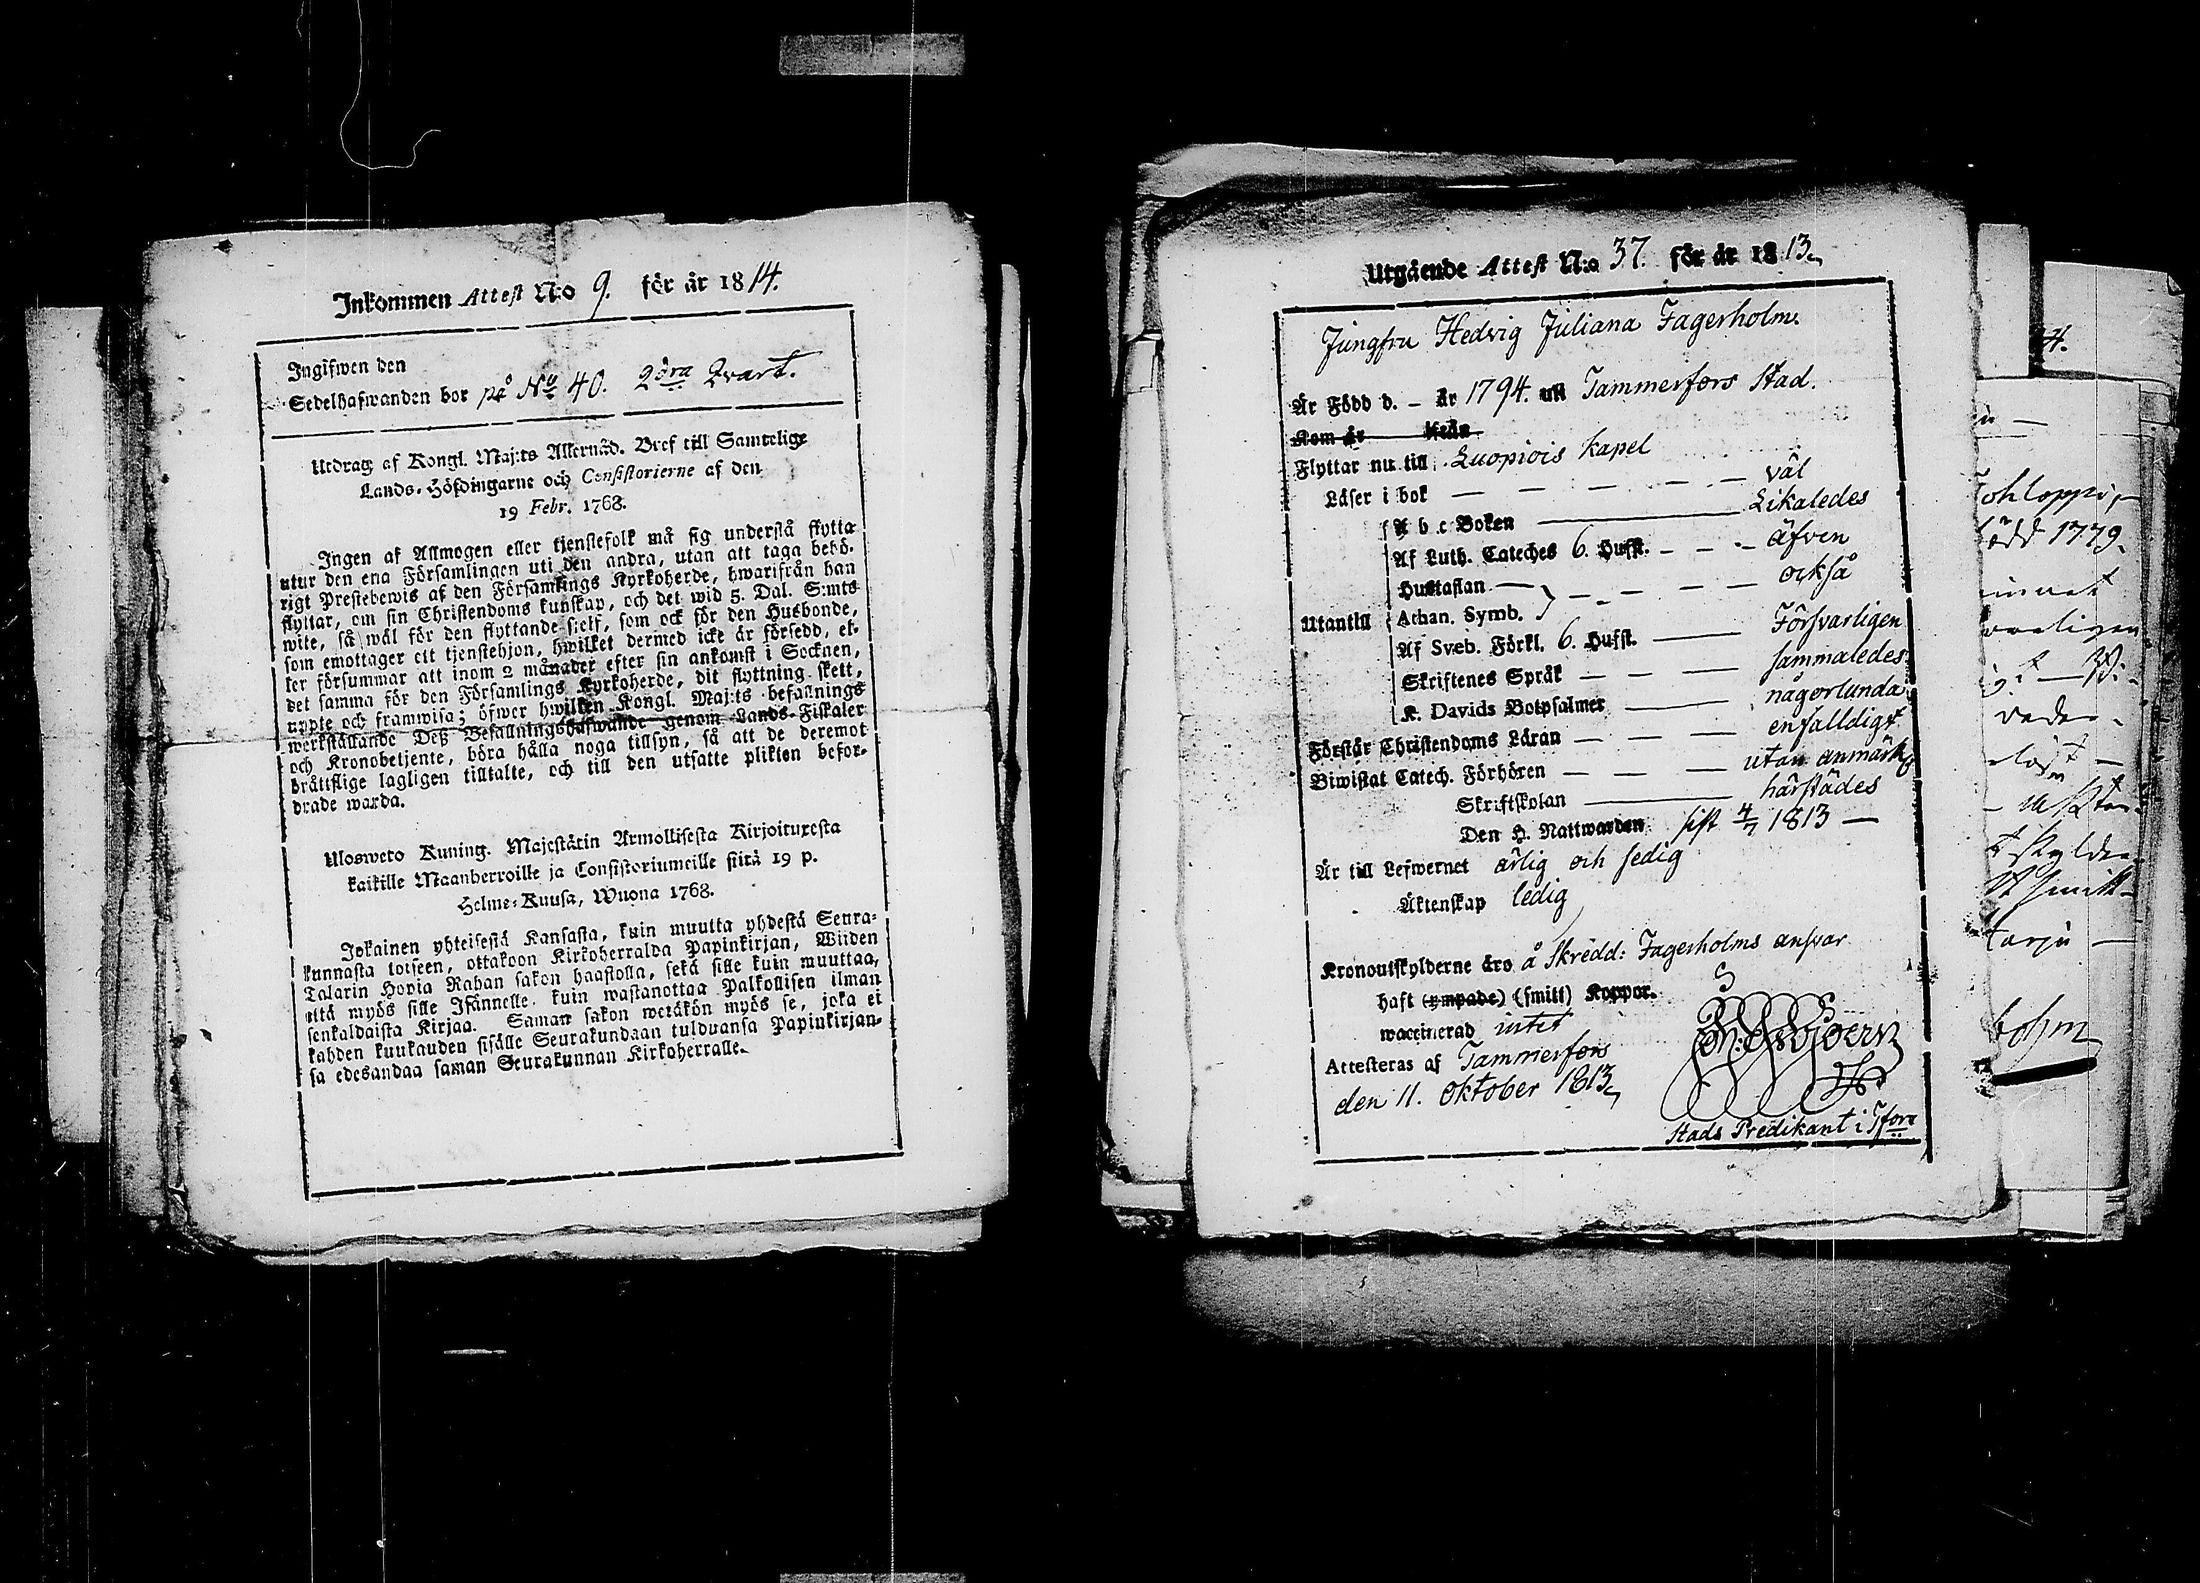 Inkommen Attest N:o 9. för år 1814.
Ingifwen den
Sedelhafwanden bor på No 40. 2dra Qvart.
Utdrag af Kongl. Maj:ts Allernåd. Bref till Samtelige
Lands-Höfdingarne och Consistorierne af den
19 Febr. 1768.
Ingen af Allmogen eller tjenstefolk må sig understå flytta
utur den ena Församlingen uti den andra, utan att taga behö-
rigt Prestebewis af den Församlings Kyrkoherde, hwarifrån han
flyttar, om sin Christendoms kunskap, och det wid 5. Dal. S:mts
wite, så wäl för den flyttande sjelf, som ock för den Husbonde,
som emottager ett tjenstehjon, hwilket dermed icke är försedd, el-
ler försummar att inom 2 månader efter sin ankomst i Socknen,
det samma för den Församlings Kyrkoherde, dit flyttning skett,
uppte och framwisa; öfwer hwilken Kongl. Maj:ts befallnings
werkställande Deß Befallningshafwande genom Lands-Fiskaler
och Kronobetjente, böra hålla noga tillsyn, så att de deremot
bråttslige lagligen tilltalte, och till den utsatte plikten befor-
drade warda.
Ulosweto Kuning. Majestätin Armollisesta Kirjoituxesta
kaikille Maanherroille ja Consistoriumeille siitä 19 p.
Helme-Kuusa, Wuona 1768.
Jokainen yhteisestä Kansasta, kuin muutta yhdestä Seura-
kunnasta toiseen, ottakoon Kirkoherralda Papinkirjan, Wiiden
Talarin Hopia Rahan sakon haastolla, sekä sille kuin muuttaa,
että myös sille Isännelle, kuin wastanottaa Palkollisen ilman
senkaldaista Kirjaa. Saman sakon wetäkön myös se, joka ei
kahden kuukauden sisälle Seurakundaan tulduansa Papinkirjan-
sa edesandaa saman Seurakunnan Kirkoherralle.
Utgående Attest N:o 37. för år 1813.
Jungfru Hedvig Juliana Fagerholm.
Är Född d. – år 1794. uti Tammerfors Stad.
Kom år ifrån
Flyttar nu till Luopiois Kapel
Läser i bok — — — — — — väl
A b c Boken ——— Likaledes
Af Luth. Cateches 6. Hufst. – – – äfven
Hustaflan — — — — också
Utantill Athan. Symb.
Af Sveb. Förkl. 6. Hufst. —— Försvarligen
Skriftenes Språk — — — sammaledes
K. Davids Botpsalmer —— någorlunda
Förstår Christendoms Läran — — — enfalldigt
Biwistat Catech. Förhören — — — utan anmärk
Skriftskolan ——— härstädes
Den H. Nattwarden sist 4/7 1813 —
Är till Lefwernet ärlig och sedig
Äktenskap ledig
Kronoutskylderne äro å Skrädd: Fagerholms ansvar
haft (ympade) (smitt) Koppor.
waccinerad intet
Attesteras af Tammerfors
den 11. Oktober 1813
Stads Predikant i Tfors
ohloppi,
född 1779.